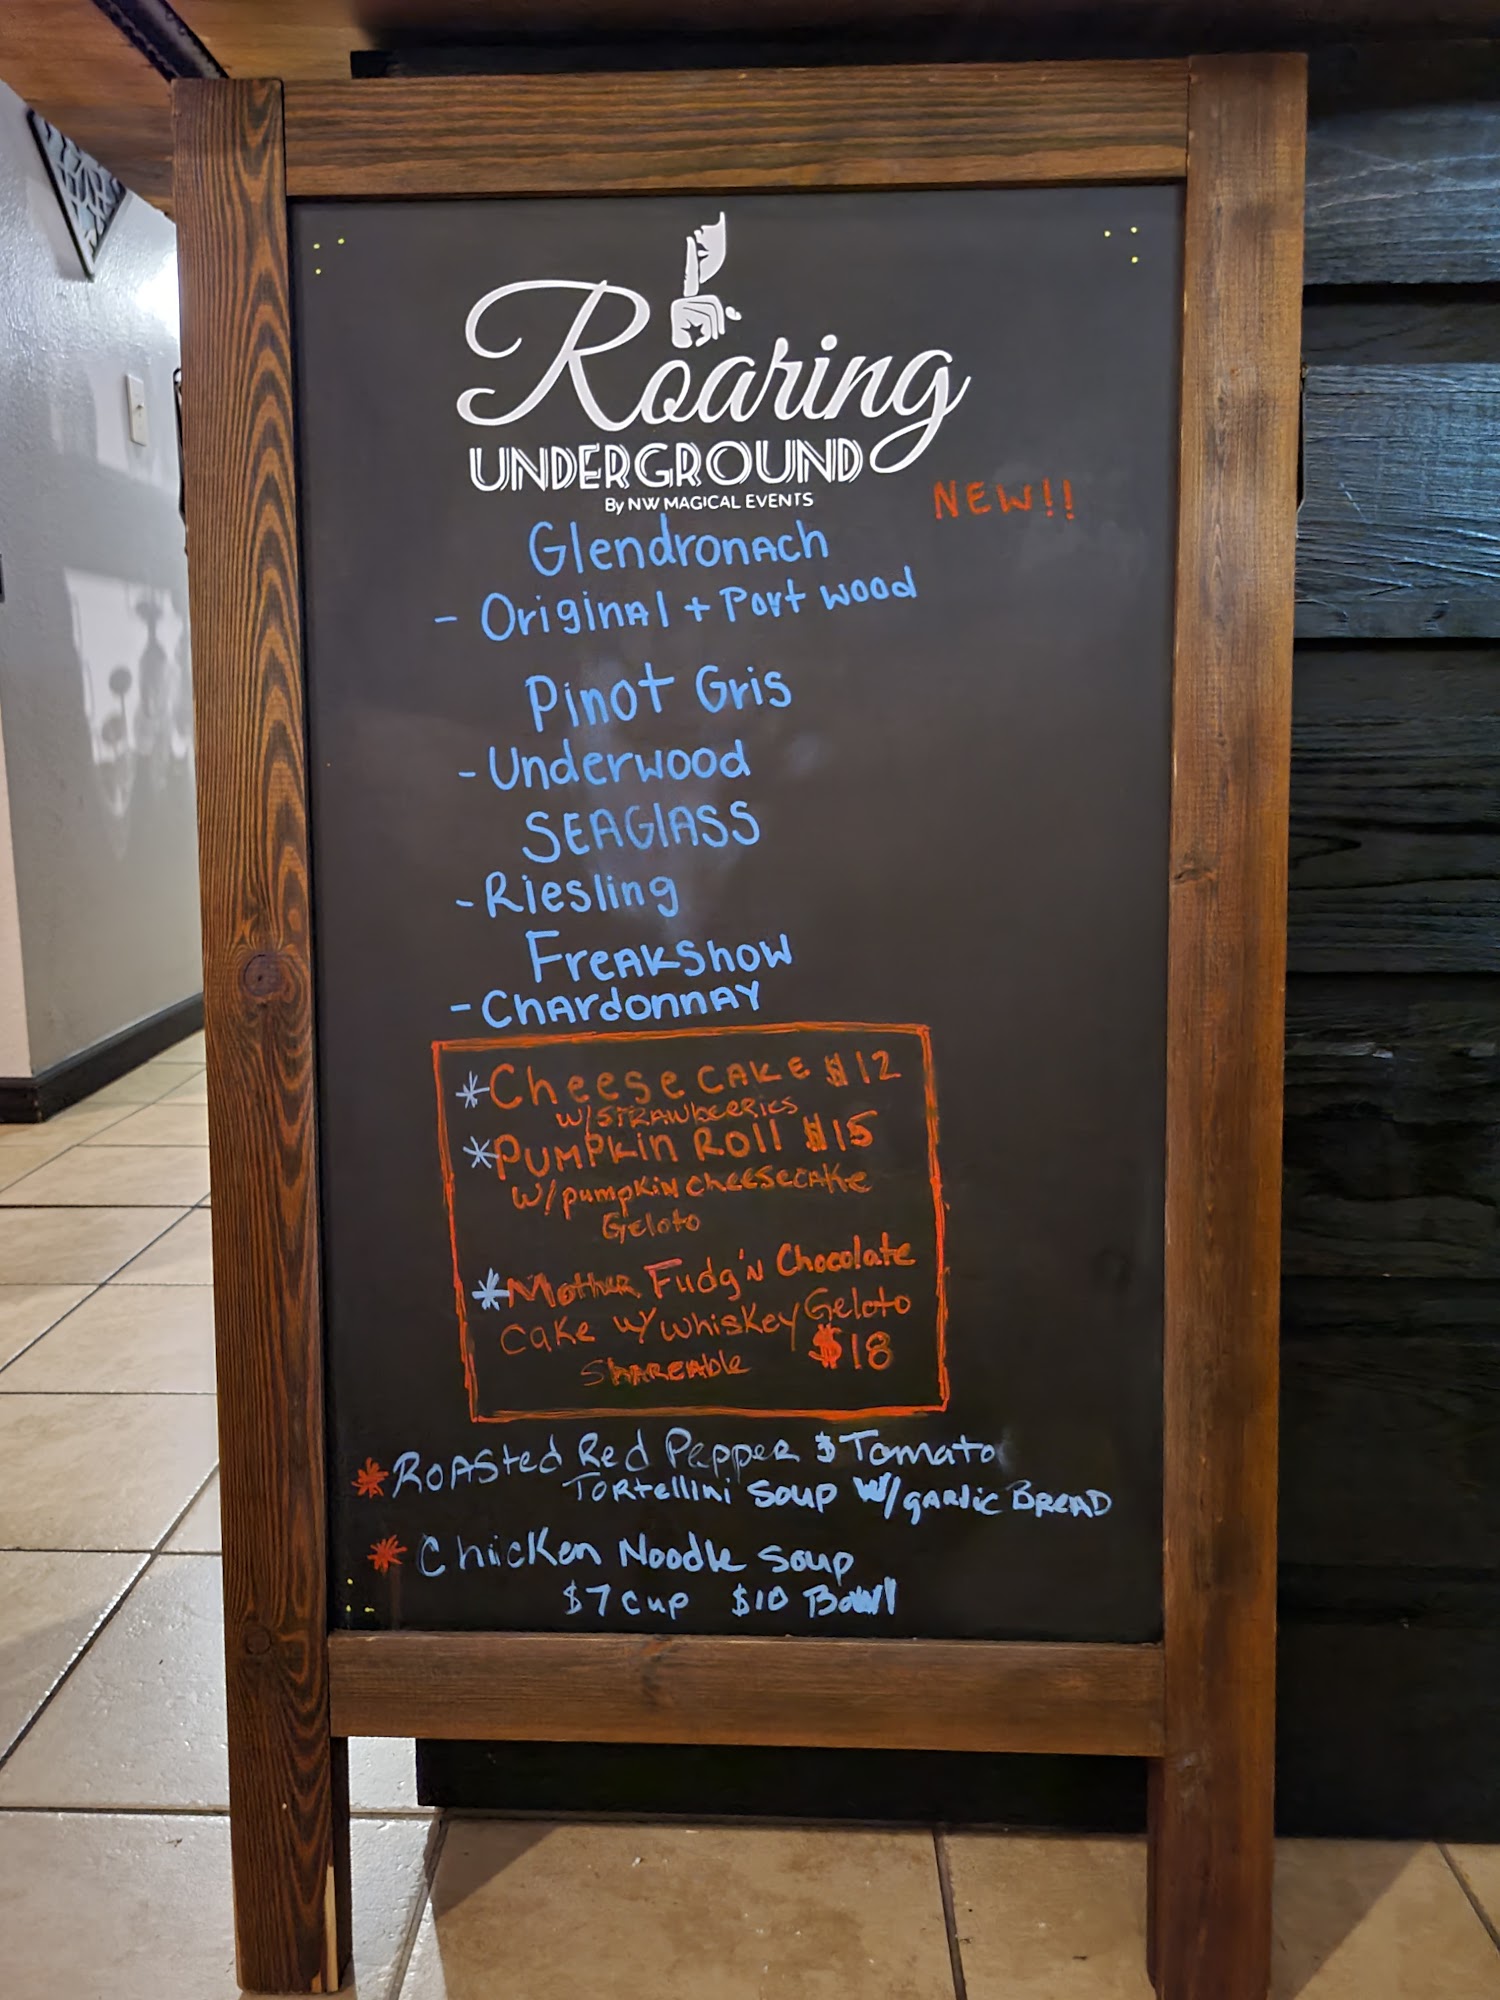 Roaring
UNDERGROUND
By NW MAGICAL EVENTS
NEW!!
Glendronach
- Original + Port wood
Pinot Gris
- Underwood
SEAGlASS
- Riesling
FreakShow
- Chardonnay
*Cheese CAKE $12
w/STRAWbeeries
*PUMPKin Roll $15
w/pumpkin cheesecake
Geloto
*Mother Fudg'n Chocolate
Cake w/ whiskey Geloto
Shareable $18
*Roasted Red Pepper & Tomato
Tortellini Soup w/ garlic Bread
*Chicken Noodle Soup
$7 cup $10 Bowl